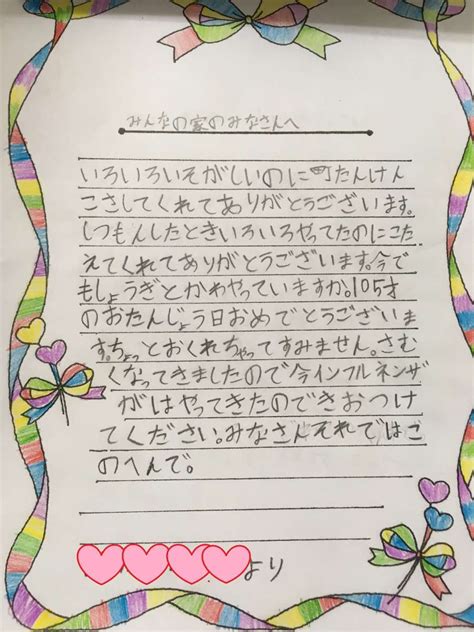 みんなの家のみなさんへ
いろいろいそがしいのに町たんけん
こさしてくれてありがとうございます。
しつもんしたときいろいろやってたのにこた
えてくれてありがとうございます。今で
もしょうぎとかわやっていますか。105才
のおたんじょう日おめでとうございま
す。ちょっとおくれちゃってすみません。さむ
くなってきましたので今インフルネンザ
がはやってきたのできおつけ
てください。みなさんそれではこ
のへんで。
より